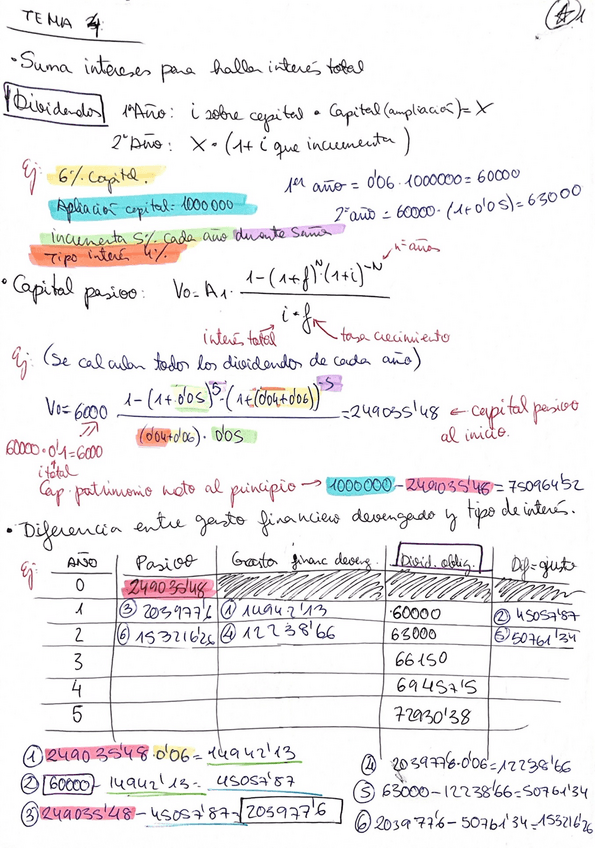 TEMA 4
1
• Suma intereses para hallar interés total
Dividendos
1º Año: i sobre capital • Capital (ampliación) = X
2º Año: X • (1 + i que incrementa)
Ej: 6% Capital.
Apliación capital = 1000000
incrementa 5% cada año durante 5 años
Tipo interés 4%.
1er año = 0'06 · 1000000 = 60000
2º año = 60000 · (1+0'05) = 63000
• Capital pasivo: Vo = A1 · 1-(1+f)^N · (1+i)^-N
i • f
nº años
interés total
tasa crecimiento
Ej: (Se calculan todos los dividendos de cada año)
Vo = 6000 1-(1+0'05)^5 · (1+(0'04+0'06))^-5 = 249035'48 ← capital pasivo
(0'04+0'06) · 0'05
al inicio.
60000 · 0'1 = 6000
i total
Cap. patrimonio neto al principio → 1000000 - 249035'48 = 750964'52
• Diferencia entre gasto financiero devengado y tipo de interés.
Ej: AÑO Pasivo Gasto financ deveng. Divid. oblig. Dif = ajuste
0 249035'48
1 ③ 203977'6 ① 14942'13 60000 ② 45057'87
2 ⑥ 153216'26 ④ 12238'66 63000 ⑤ 50761'34
3 66150
4 69457'5
5 72930'38
① 249035'48 · 0'06 = 14942'13
② 60000 - 14942'13 = 45057'87
③ 249035'48 - 45057'87 = 203977'6
④ 203977'6 · 0'06 = 12238'66
⑤ 63000 - 12238'66 = 50761'34
⑥ 203977'6 - 50761'34 = 153216'26